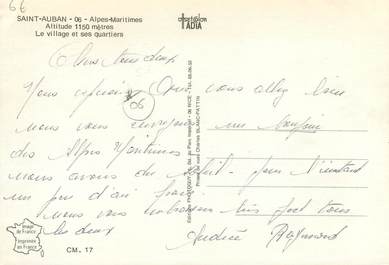 66
SAINT-AUBAN - 06 - Alpes-Maritimes
Altitude 1150 mètres
Le village et ses quartiers
ADIA
Chers tous deux
Nous espérons que vous allez bien
06
nous vous envoyons un bonjour
des Alpes Maritimes
nous avons du soleil - pour l'instant
un peu d'air frais
nous vous embrassons bien fort tous
les deux
Andrée Raymond
Image de France
Imprimée en France
CM. 17